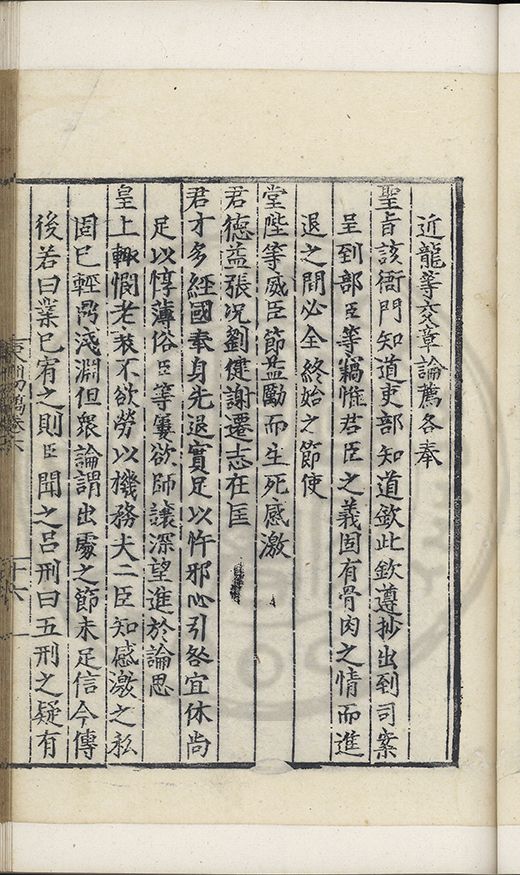 近龍等交章論薦各奉
聖旨該衙門知道吏部知道欽此欽遵抄出到司案
呈到部臣等竊惟君臣之義固有骨肉之情而進
退之間必全終始之節使
堂陛等威臣節益勵而生死感激
君德益張況劉健謝遷志在匡
君才多經國奉身先退實足以忤邪心引咎宜休尚
足以惇薄俗臣等寔欲師讓深望進於論思
皇上輙憫老衰不欲勞以機務夫二臣知感激之私
固已輕鼎淺淵但衆論謂出處之節未足信今傳
後若曰業已宥之則臣聞之呂刑曰五刑之疑有